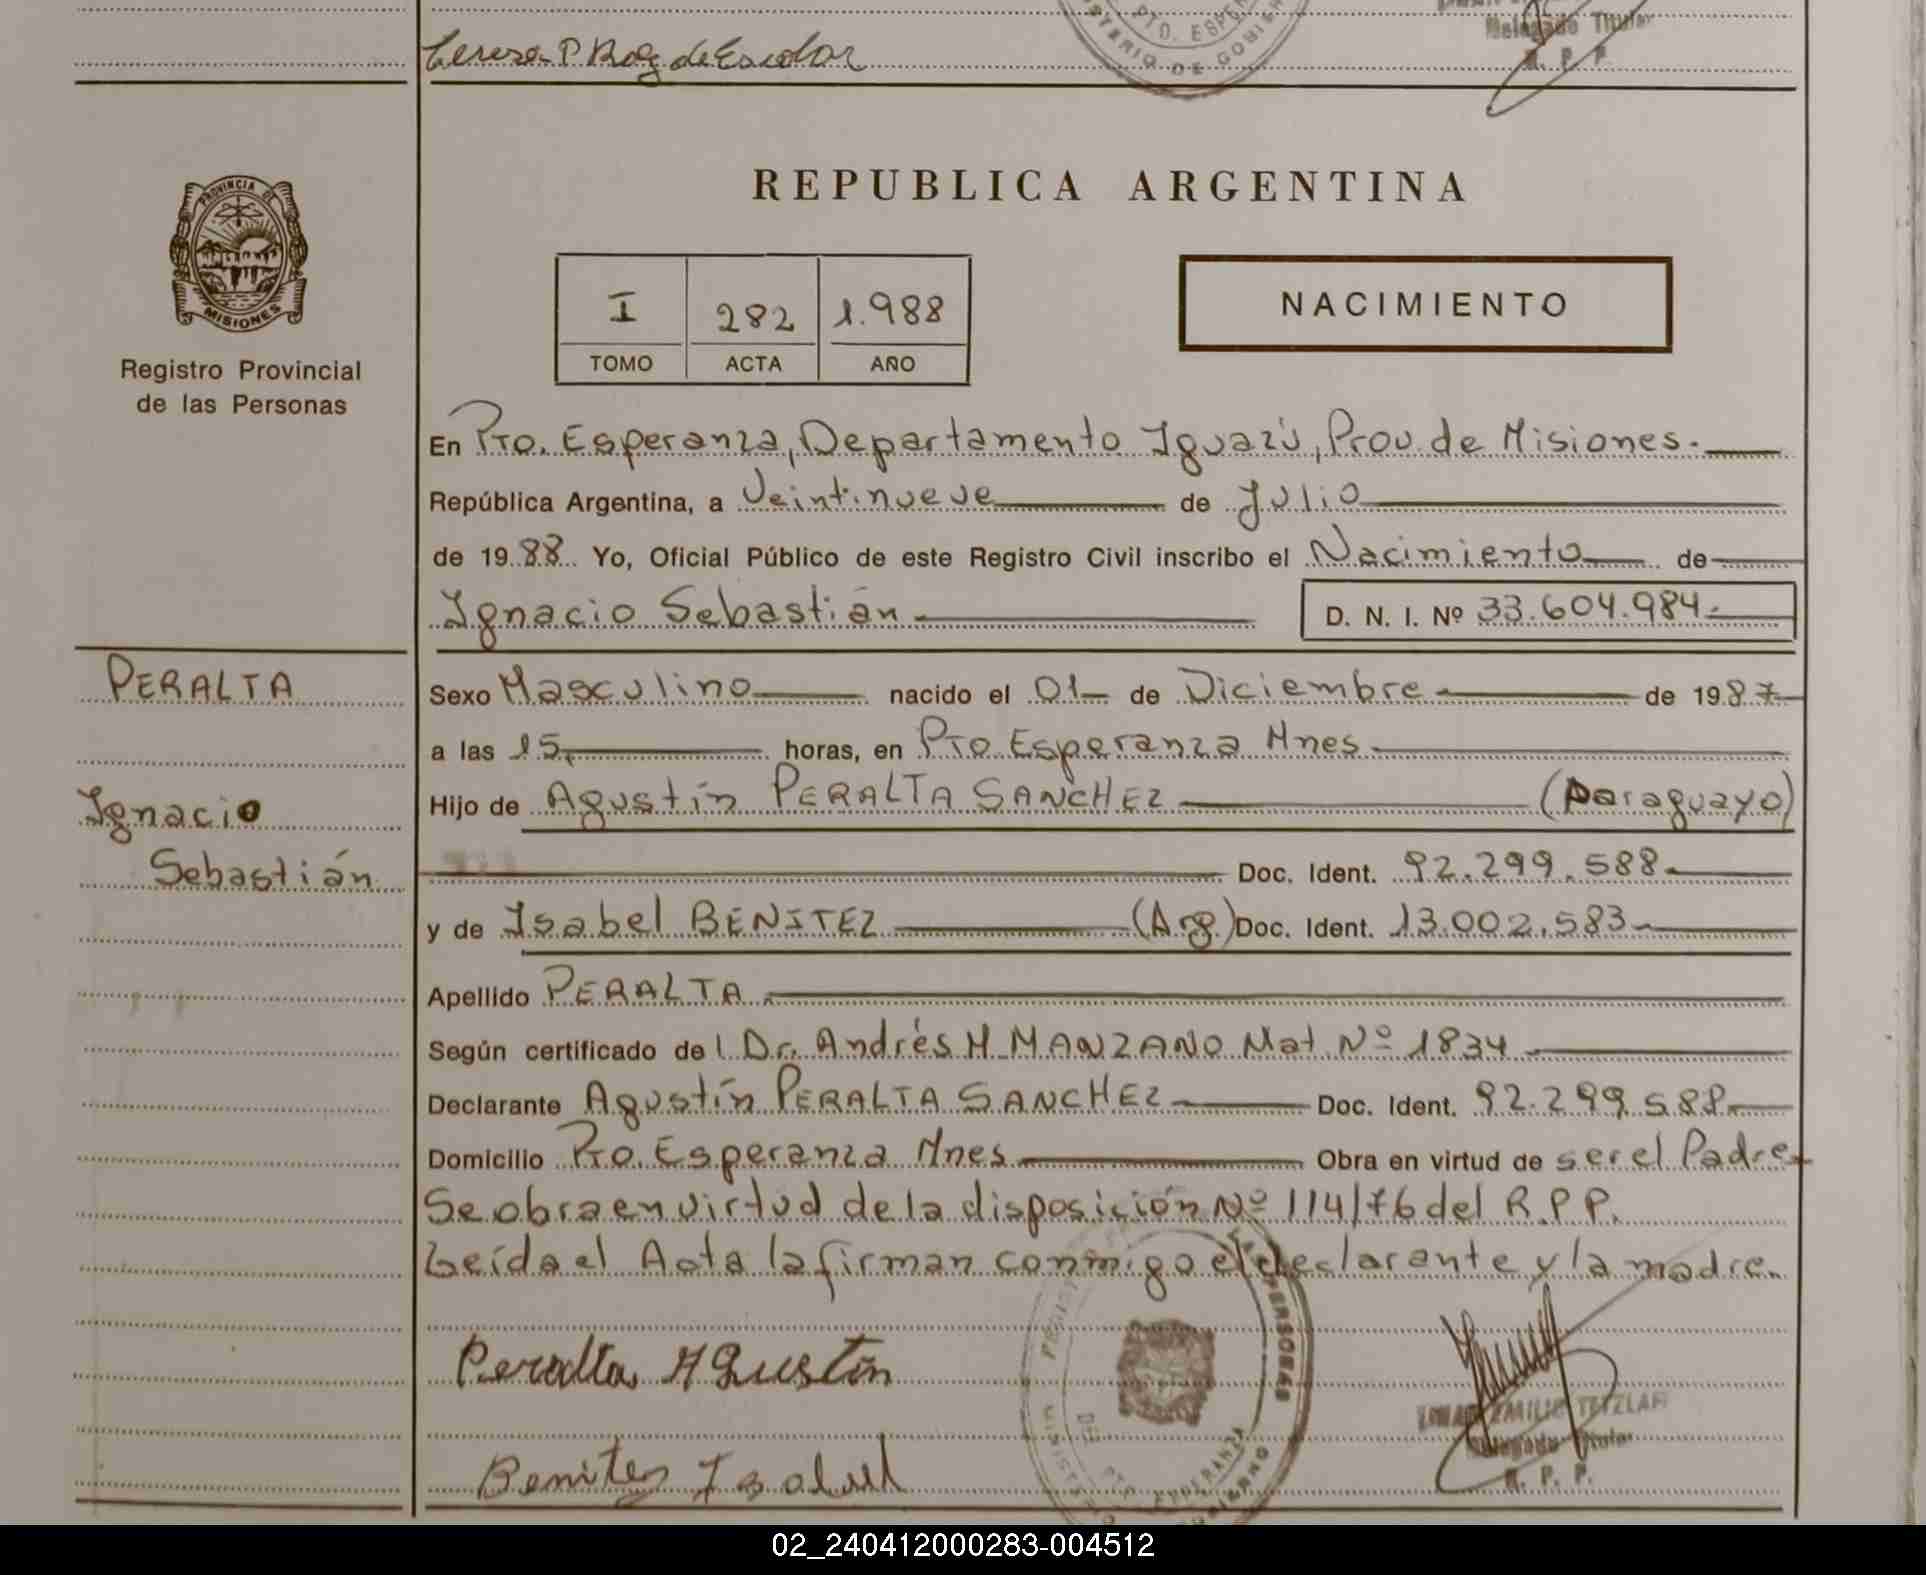 Teresa P. Rog de Escobar
PTO. ESPER
MINISTERIO DE GOBIER
Delegado Titular
R. P. P.
PROVINCIA DE
MISIONES
Registro Provincial
de las Personas
REPUBLICA ARGENTINA
I 282 1.988
TOMO ACTA AÑO
NACIMIENTO
En Pto. Esperanza, Departamento Iguazú, Prov. de Misiones.
República Argentina, a Veintinueve de Julio
de 19 88 Yo, Oficial Público de este Registro Civil inscribo el Nacimiento de
Ignacio Sebastián D. N. I. Nº 33.604.984.
PERALTA
Ignacio
Sebastián
Sexo Masculino nacido el 01 de Diciembre de 19 87
a las 15, horas, en Pto Esperanza Mnes
Hijo de Agustín PERALTA SANCHEZ (Paraguayo)
Doc. Ident. 92.299.588
y de Isabel BENITEZ (Arg) Doc. Ident. 13.002.583
Apellido PERALTA
Según certificado del Dr. Andrés M MANZANO Mat Nº 1834
Declarante Agustín PERALTA SANCHEZ Doc. Ident. 92.299.588
Domicilio Pto. Esperanza Mnes Obra en virtud de ser el Padre
Se obra en virtud de la disposición Nº 114/76 del R.P.P.
Leída el Acta la firman conmigo el declarante y la madre.
Peralta Agustín
Benitez Isabel
PERSONAS
PTO. ESPERANZA
EMILIO TETZLAFF
Delegado Titular
R. P. P.
02_240412000283-004512